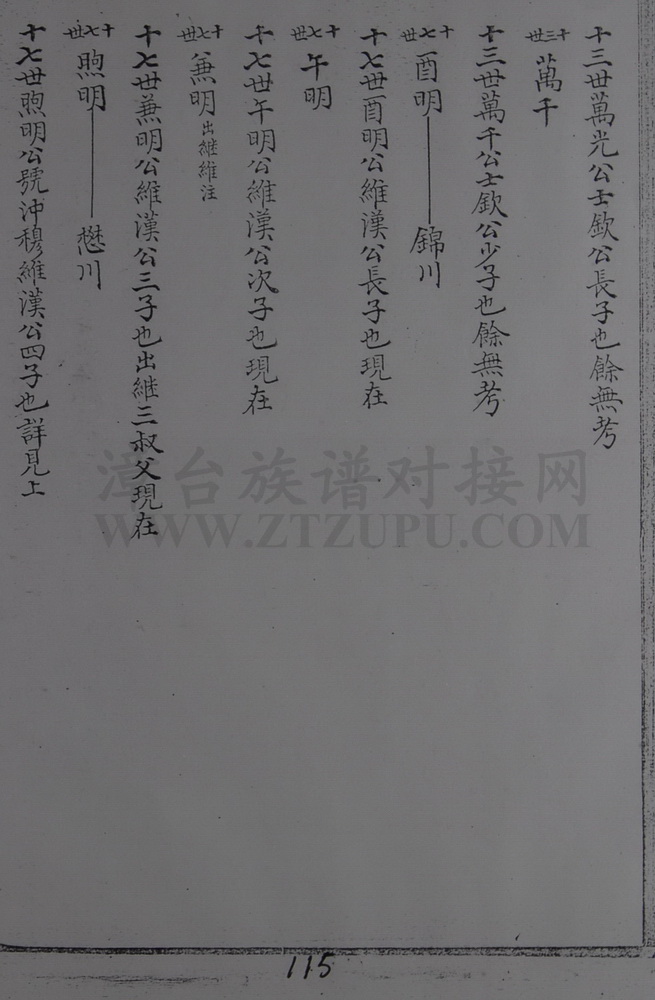 十三世萬光公士欽公長子也餘無考
十三世
萬千
十三世萬千公士欽公少子也餘無考
十七世
酉明——錦川
十七世酉明公維漢公長子也現在
十七世
午明
十七世午明公維漢公次子也現在
十七世
兼明出繼維注
十七世兼明公維漢公三子也出繼三叔父現在
十七世
煦明——懋川
十七世煦明公號沖穆維漢公四子也詳見上
漳台族谱对接网
WWW.ZTZUPU.COM
115